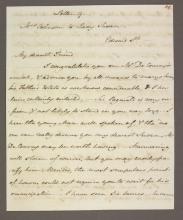 Letter 9
Mrs Johnson to Lady Susan
Edward St.
My dearest Friend
I congratulate you on Mr De Courcy's
arrival, & advise you by all means to marry him;
his Father's Estate is we know considerable, & I be-
leive certainly entailed. Sir Reginald is very in-
firm, & not likely to stand in your way long. I
hear the young Man well spoken of, & tho' no
one can really deserve you my dearest Susan, Mr
De Courcy may be worth having. Manwaring
will storm of course, but you may easily paci-
fy him. Besides, the most scrupulous point
of honour could not require you to wait for his
emancipation. I have seen Sir James,